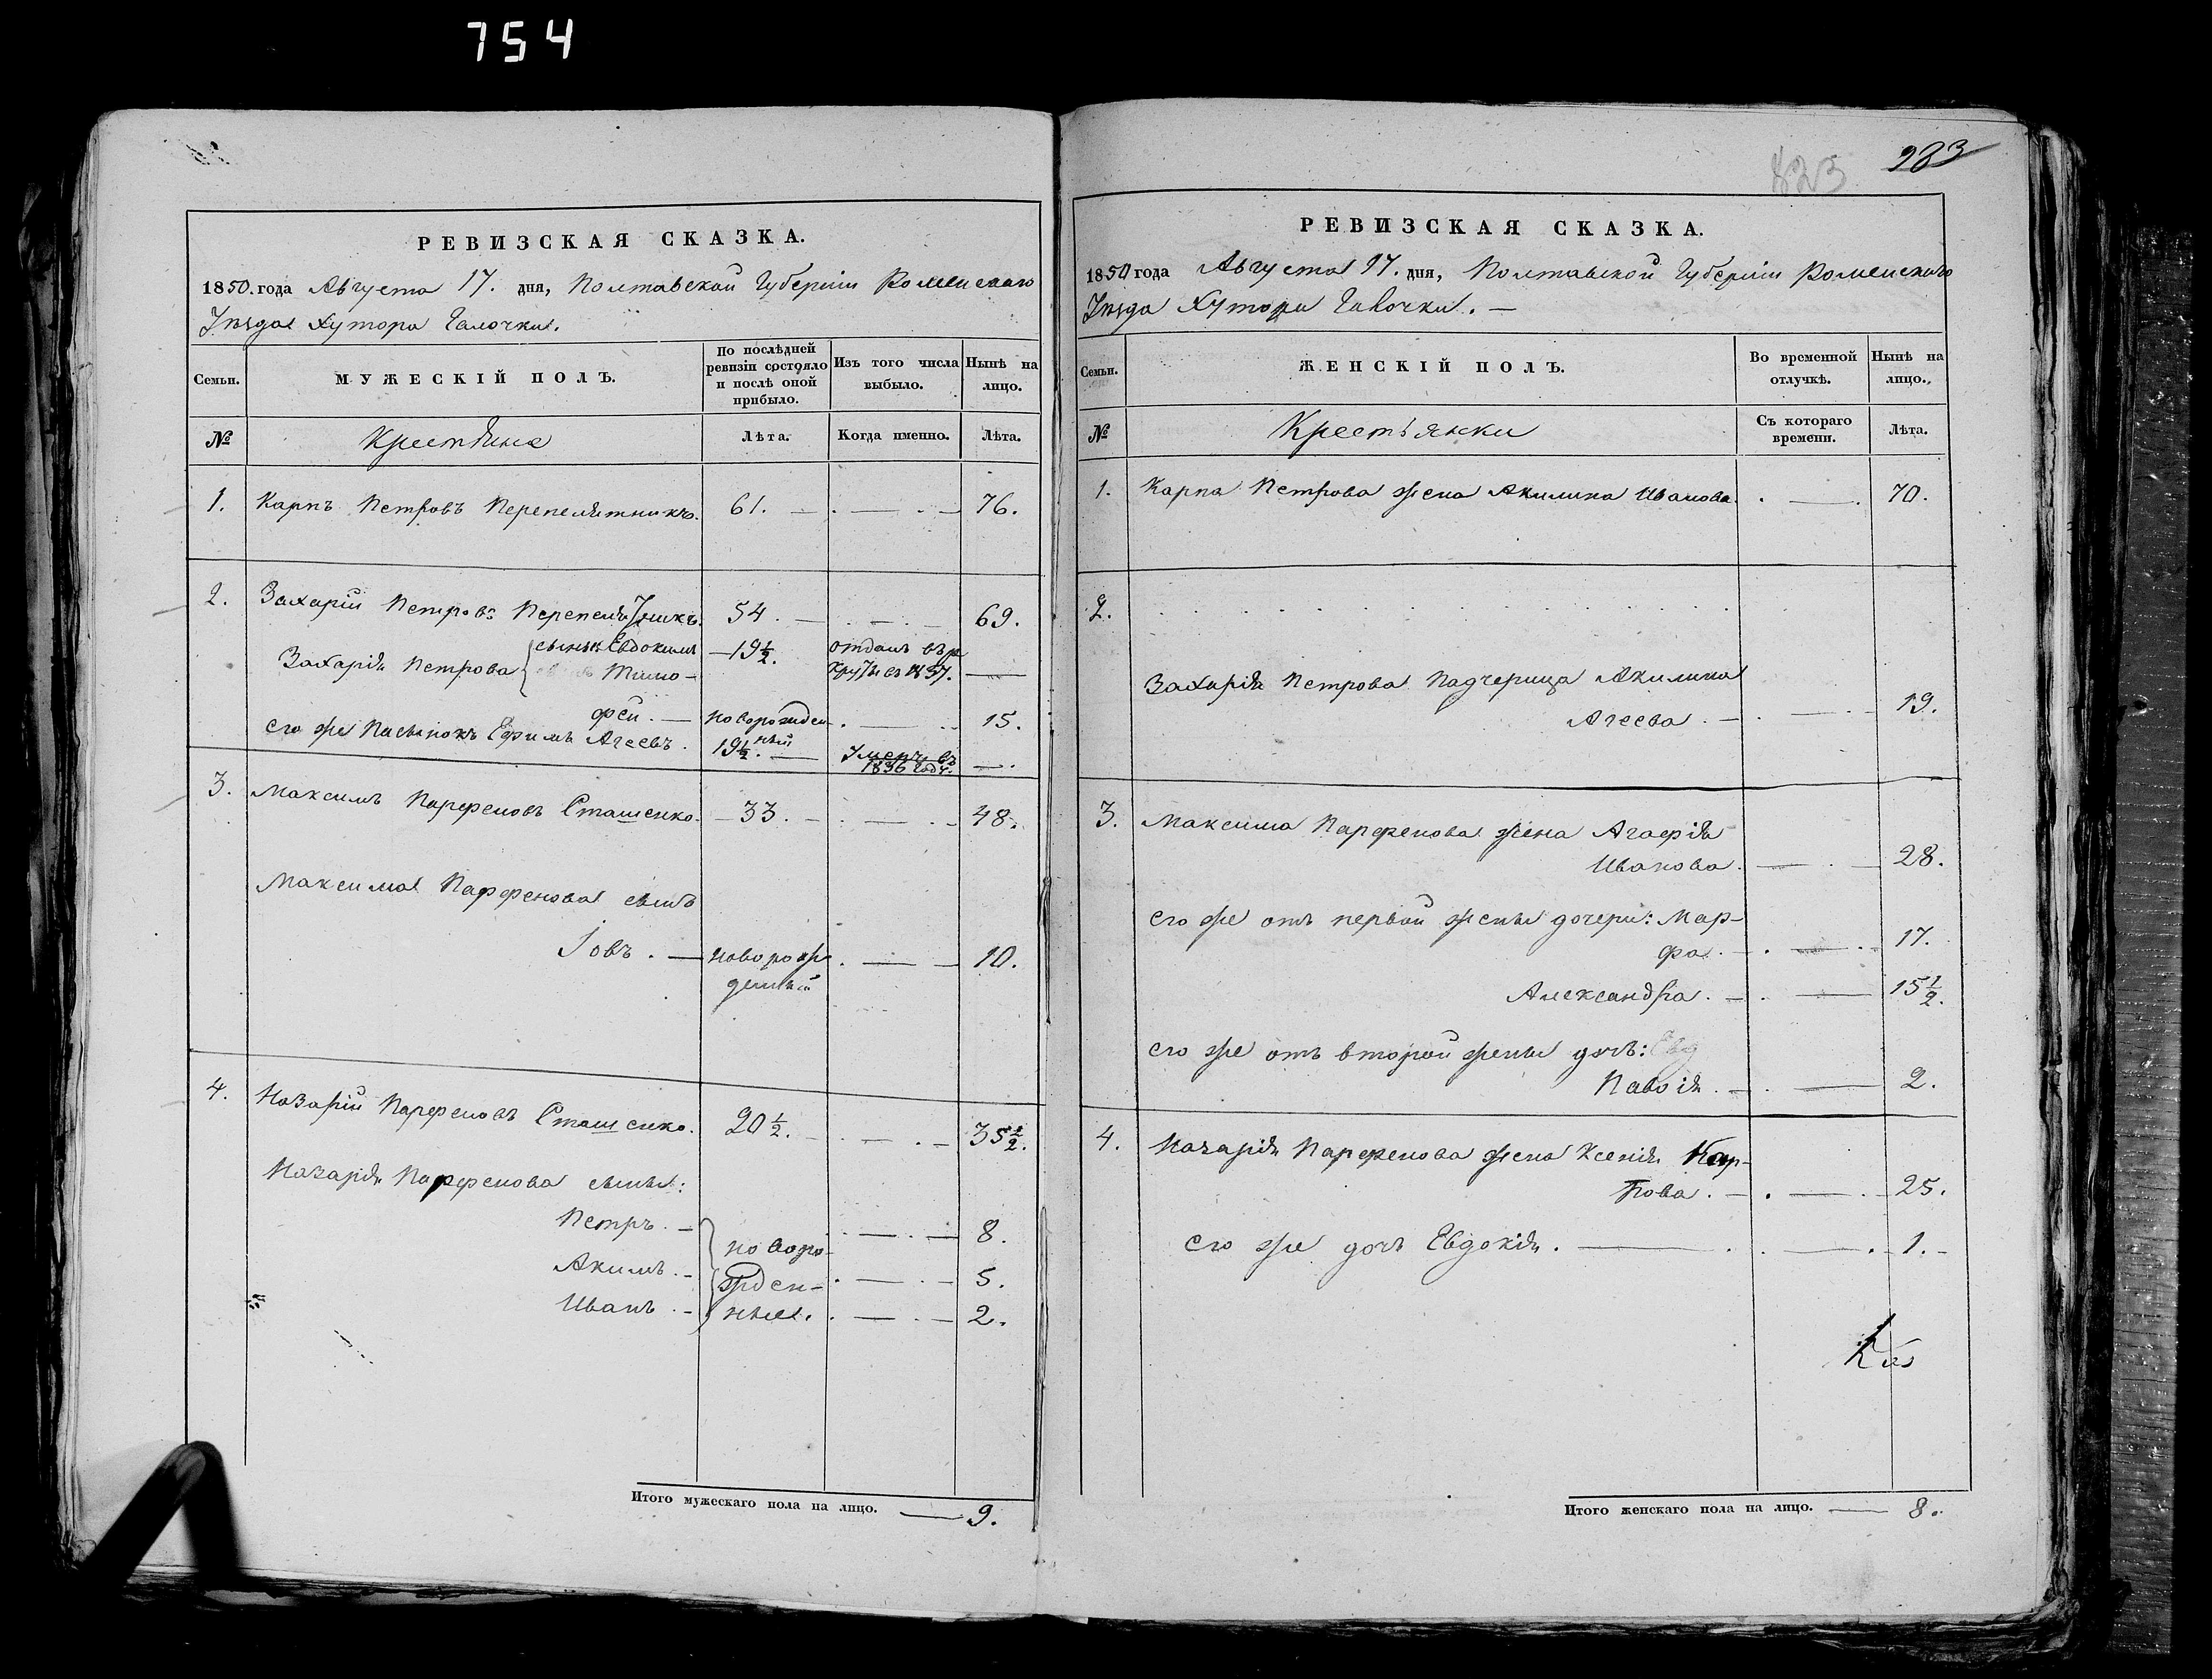 754
РЕВИЗСКАЯ СКАЗКА.
1850. года Августа 17. дня, Полтавской Губерніи Роменскаго
Уѣзда Хутора Галочки.
Семьи.
МУЖЕСКІЙ ПОЛЪ.
По послѣдней ревизіи состояло и послѣ оной прибыло.
Изъ того числа выбыло.
Нынѣ на лицо.
№
Крестьяне
Лѣта.
Когда именно.
Лѣта.
1. Карпъ Петровъ Перепелятникъ. 61. 76.
2. Захарій Петровъ Перепелятникъ. 54. 69.
Захарія Петрова сынъ Евдокимъ 19½. отданъ въ ре
круты въ 1837.
Тимо-
фей. новорожден 15.
ный
его же пасынокъ Ефимъ Агеевъ. 19½. Умеръ въ
1836 году.
3. Максимъ Парфеновъ Сташенко. 33. 48.
Максима Парфенова сынъ
Іовъ. новорож 10.
денный
4. Назарій Парфеновъ Сташенко. 20½. 35½.
Назарія Парфенова сыны:
Петръ. 8.
новоро-
Акимъ. жден- 5.
Иванъ. ные. 2.
Итого мужескаго пола на лицо. 9.
283
823
РЕВИЗСКАЯ СКАЗКА.
1850 года Августа 17. дня, Полтавской Губерніи Роменскаго
Уѣзда Хутора Галочки.
Семьи.
ЖЕНСКІЙ ПОЛЪ.
Во временной отлучкѣ.
Нынѣ на лицо.
№
Крестьянки
Съ котораго времени.
Лѣта.
1. Карпа Петрова жена Акилина Иванова. 70.
2.
Захарія Петрова Падчерица Акилина
Агеева. 19.
3. Максима Парфенова жена Агафія
Иванова. 28.
его же отъ первой жены дочери: Мар-
фа. 17.
Александра. 15½.
его же отъ второй жены дочь: Евд
Павлія. 2.
4. Назарія Парфенова жена Ксенія Кар-
пова. 25.
его же дочь Евдокія. 1.
Итого женскаго пола на лицо. 8.